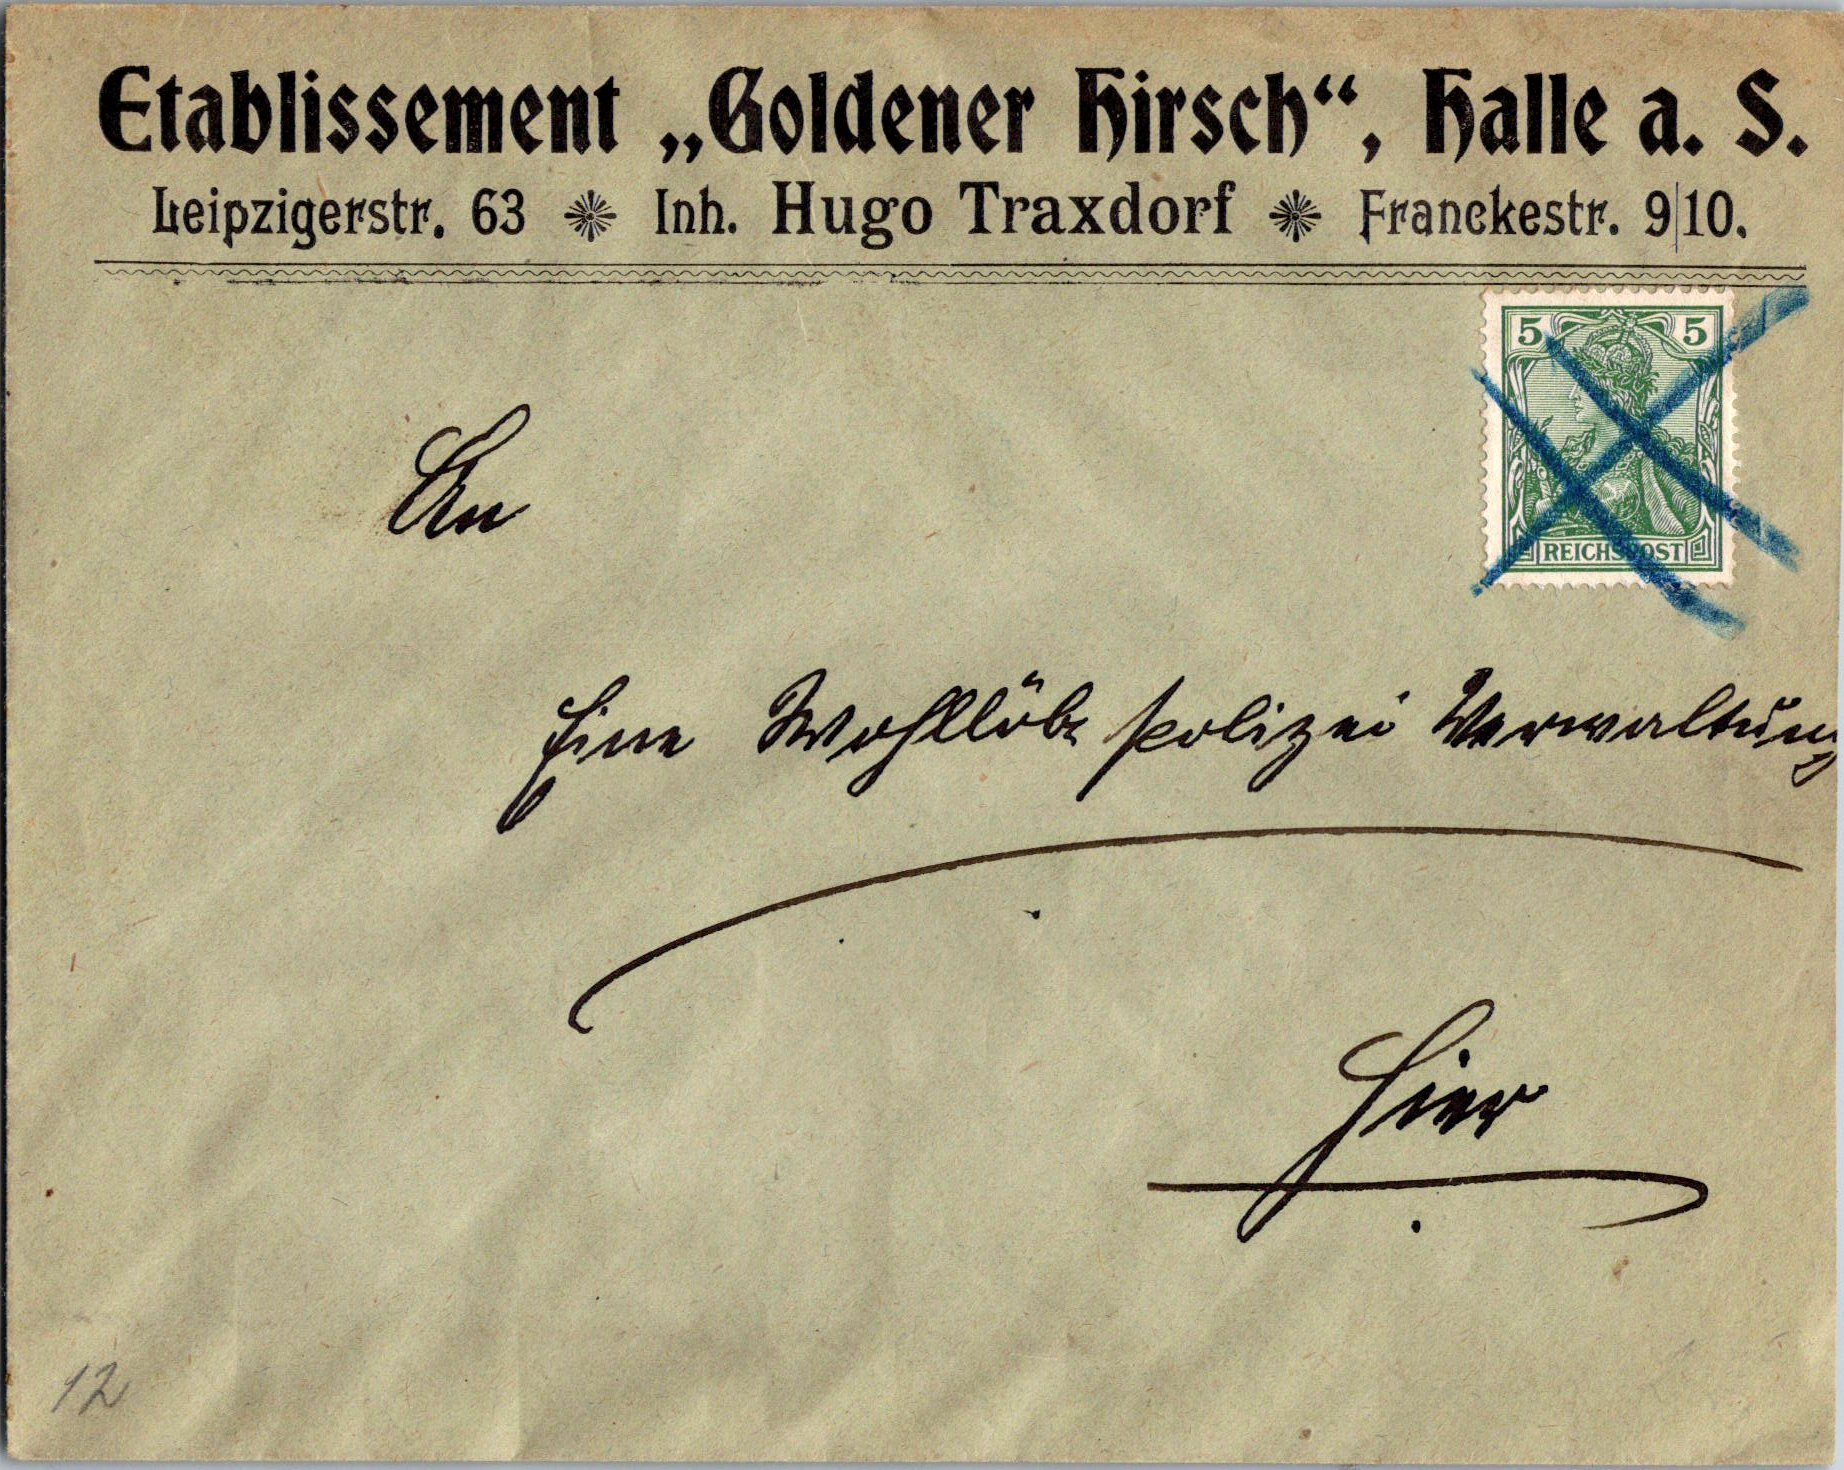 Etablissement „Goldener Hirsch“, Halle a. S.
Leipzigerstr. 63 Inh. Hugo Traxdorf Franckestr. 9|10.
5 5
REICHSPOST
An
Eine Wohllöbl Polizei Verwaltung
Hier
12